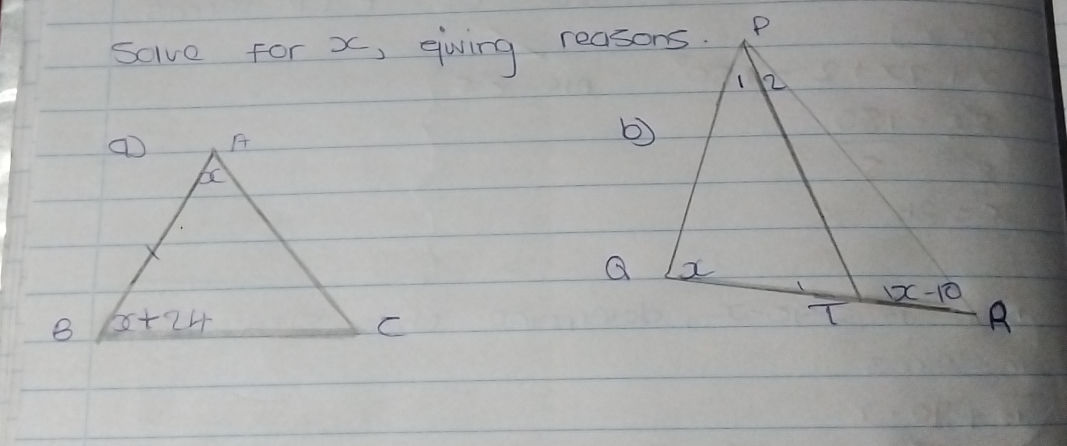 Solve for x, giving reasons.
a)
A
x
B
x+24
C
b)
P
1 2
Q
x
T
x-10
R